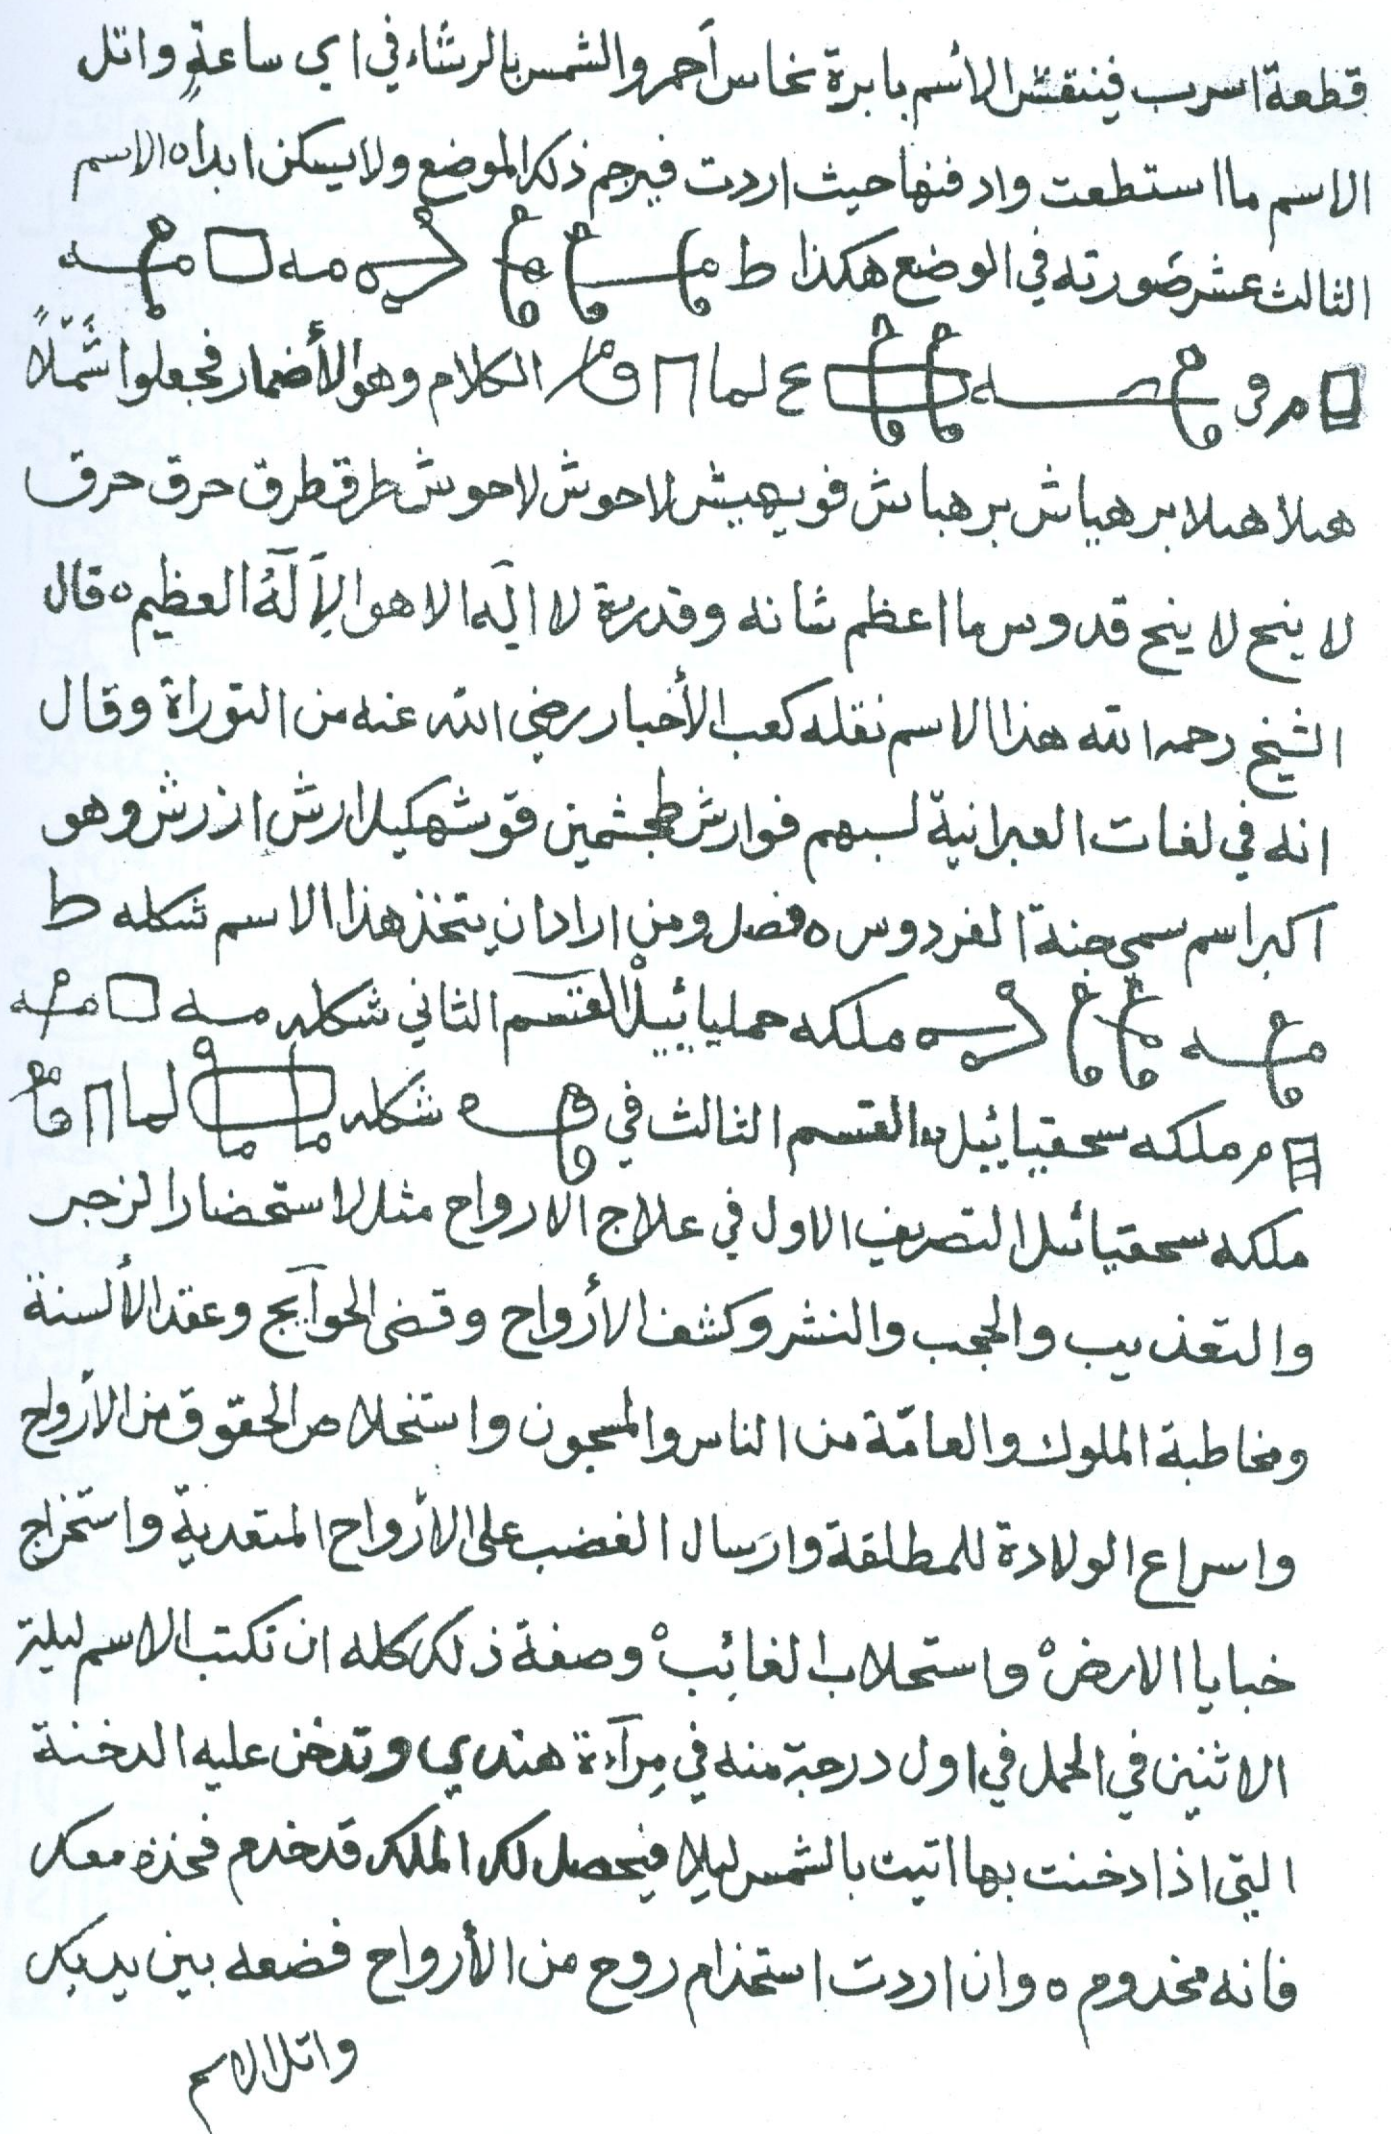 قطعة اسرب فينقش الاسم بابرة نحاس آحمر والشمس بالرشاء في اي ساعةٍ واتل
الاسم ما استطعت وادفنها حيث اردت فيرجم ذلك الموضع ولا يسكن ابدا ه الاسم
الثالث عشر صورته في الوضع هكذا ط
ع لما الكلام وهو الأضمار فجعلوا شَمّلاً
هلا هلا برهياش برهباش فويهيش لاحوش لاحوش طرق طرق حرق حرق
لا ينح لا ينح قدوس ما اعظم شانه وقدرة لا اله الا هو الإله العظيم ه قال
الشيخ رحمه الله هذا الاسم نقله كعب الأخبار رضي الله عنه من التوراة وقال
انه في لغات العبرانية لسبهم فوارش طمجشمين قوشهكيلارش ازرش وهو
اكبر اسم سمي جنة الفردوس ه فصل ومن اراد ان يتخذ هذا الاسم شكله ط
ملكه حمليائيل القسم الثاني شكله
ملكه سحقيائيل القسم الثالث في شكله لما
ملكه سحقيائيل التصريف الاول في علاج الارواح مثل الاستحضار الزجر
والتعذيب والحجب والنشر وكشف الأرواح وقضى الحوآيج وعقد الألسنة
ومخاطبة الملوك والعامّة من الناس والمسجون واستخلاص الحقوق من الأرواح
واسراع الولادة للمطلقة وارسال الغضب على الأرواح المتعدية واستخراج
خبايا الارض واستحلاب الغائب وصفة ذلك كله ان تكتب الاسم ليلة
الاثنين في الحمل في اول درجة منه في مِرآءة هندي وتدخن عليه الدخنة
التي اذا دخنت بها اتيت بالشمس ليلا فيحصل لك الملك قد خدم فخذه معك
فانه مخدوم ه وان اردت استخدام روح من الأرواح فضعه بين يديك
واتل الاسم